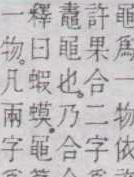 黽爲一物依
許果合二字
鼃黽也。乃合
釋曰蝦蟆。黽
一物。凡兩字